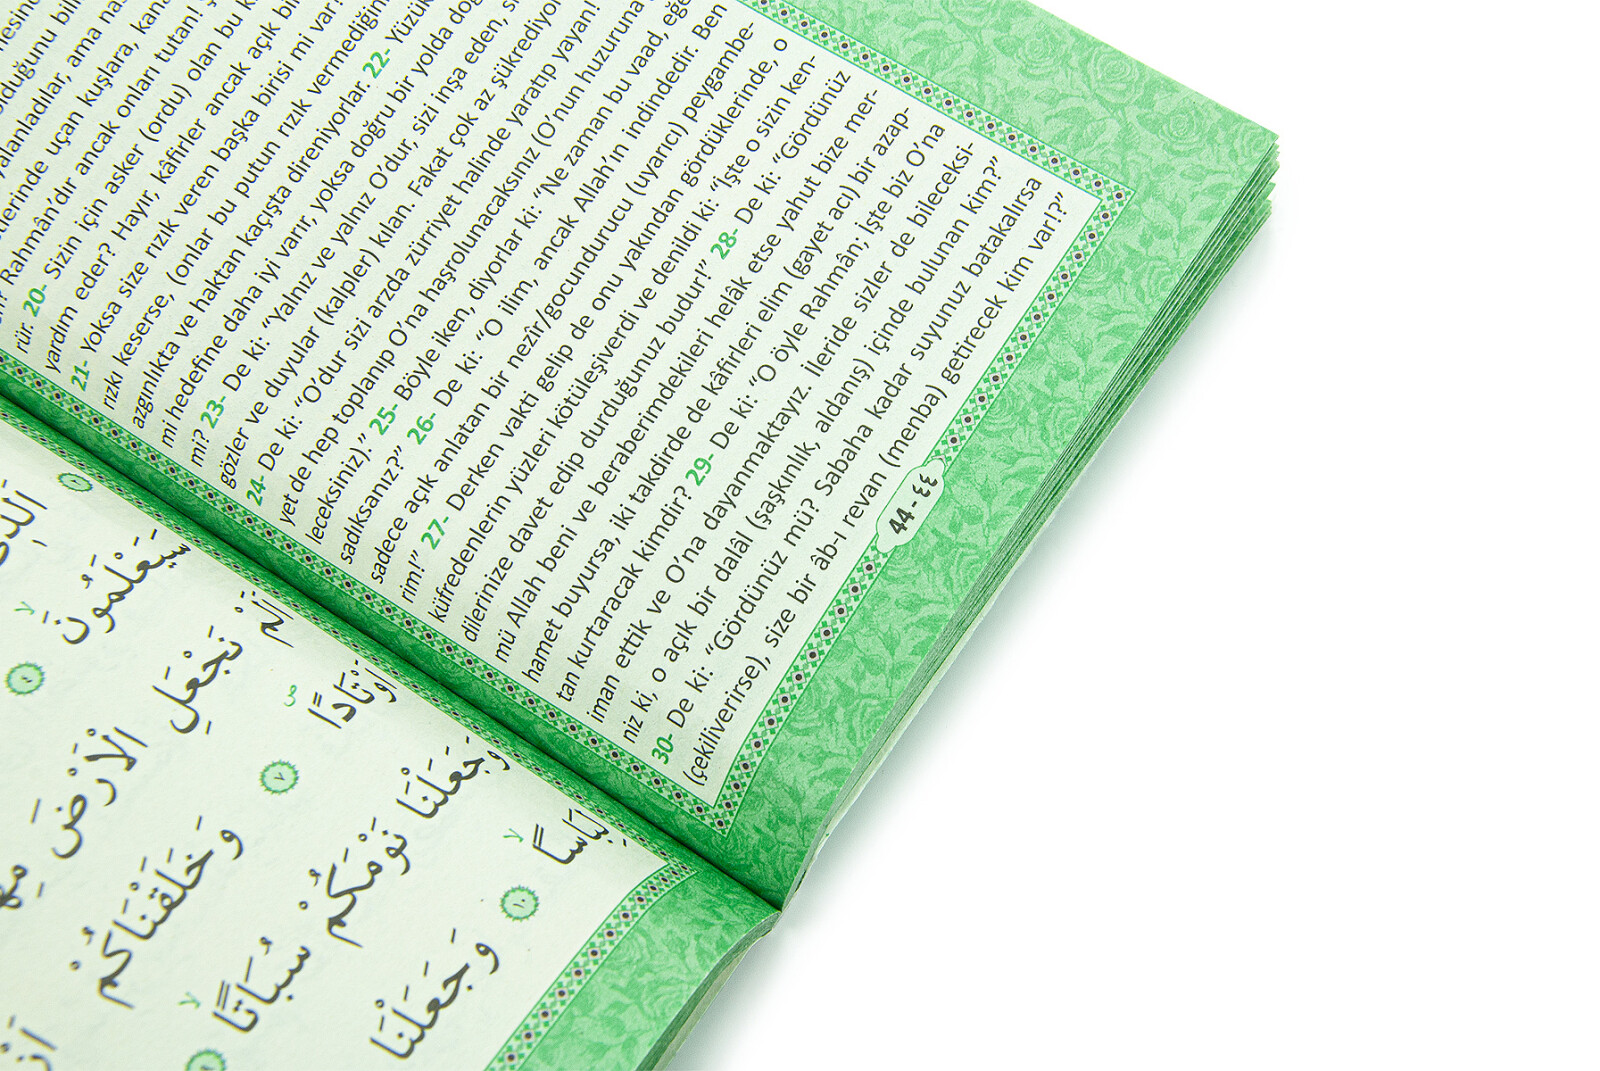 olduğunu
yalanladılar, ama
üstlerinde uçan kuşlara,
Rahmân'dır ancak onları tutan!
rür. 20- Sizin için asker (ordu) olan bu
yardım eder? Hayır, kâfirler ancak açık bir
21- Yoksa size rızık veren başka birisi mi var?
rızkı keserse, (onlar bu putun rızık vermediğini
azgınlıkta ve haktan kaçışta direniyorlar. 22-
mi hedefine daha iyi varır, yoksa doğru bir yolda
mi? 23- De ki: "Yalnız ve yalnız O'dur, sizi inşa eden,
gözler ve duyular (kalpler) kılan. Fakat çok az
24- De ki: "O'dur sizi arzda zürriyet halinde yaratıp yayan!
yet de hep toplanıp O'na haşrolunacaksınız (O'nun huzuruna
leceksiniz)." 25- Böyle iken, diyorlar ki: "Ne zaman bu vaad,
sadıksanız?" 26- De ki: "O ilim, ancak Allah'ın indindedir. Ben
sadece açık anlatan bir nezîr/gocundurucu (uyarıcı) peygambe-
rim!" 27- Derken vakti gelip de onu yakından gördüklerinde, o
küfredenlerin yüzleri kötüleşiverdi ve denildi ki: "İşte o sizin ken-
dilerimize davet edip durduğunuz budur!" 28- De ki: "Gördünüz
mü Allah beni ve beraberimdekileri helâk etse yahut bize mer-
hamet buyursa, iki takdirde de kâfirleri elim (gayet acı) bir azap-
tan kurtaracak kimdir? 29- De ki: "O öyle Rahmân; İşte biz O'na
iman ettik ve O'na dayanmaktayız. İleride sizler de bileceksi-
niz ki, o açık bir dalâl (şaşkınlık, aldanış) içinde bulunan kim?"
30- De ki: "Gördünüz mü? Sabaha kadar suyunuz batakalırsa
(çekiliverirse), size bir âb-ı revan (menba) getirecek kim var!?"
44 - ٤٤
سَيَعْلَمُونَ
اَلَمْ نَجْعَلِ الْاَرْضَ
اَوْتَادًا ٧ وَخَلَقْنَاكُمْ
وَجَعَلْنَا نَوْمَكُمْ سُبَاتًا
لِبَاسًا ١٠ وَجَعَلْنَا